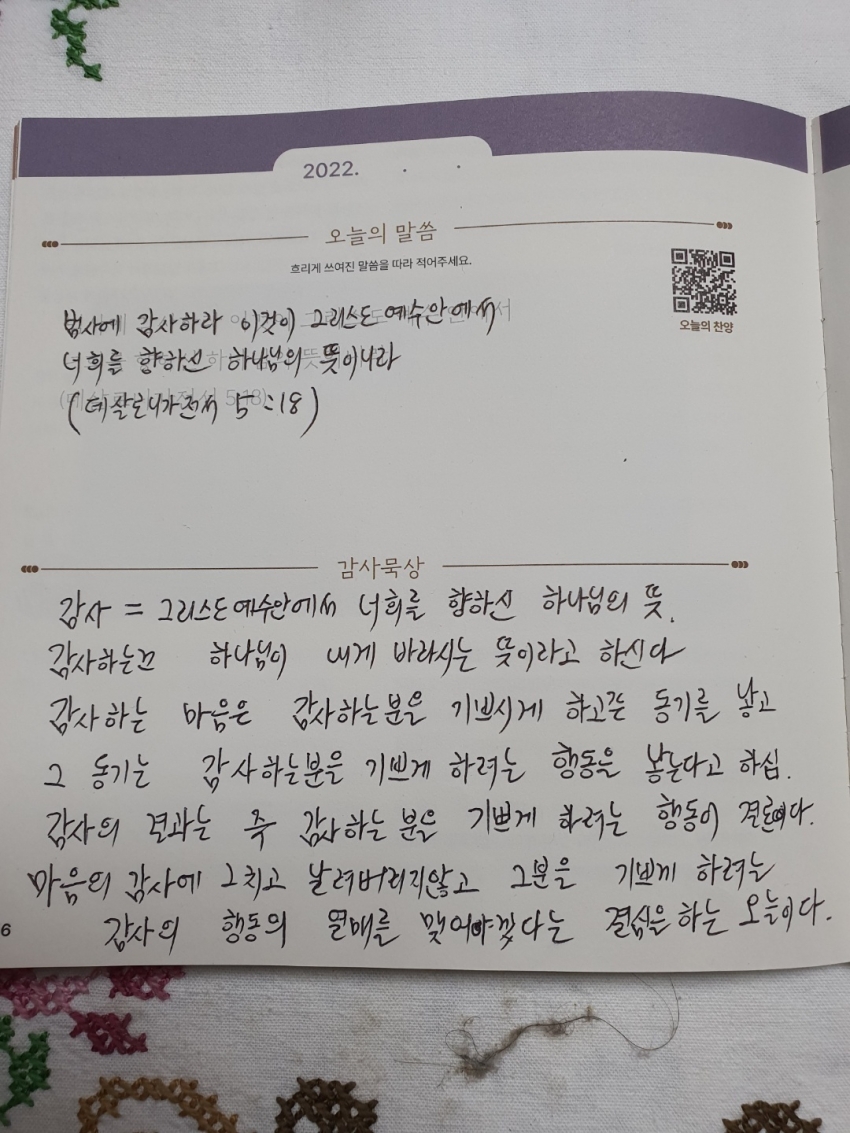 2022. . .
오늘의 말씀
흐리게 쓰여진 말씀을 따라 적어주세요.
오늘의 찬양
범사에 감사하라 이것이 그리스도 예수안에서
너희를 향하신 하나님의 뜻이니라
(데살로니가전서 5:18)
감사묵상
감사 = 그리스도예수안에서 너희를 향하신 하나님의 뜻.
감사하는끈 하나님이 내게 바라시는 뜻이라고 하신다
감사하는 마음은 감사하는분을 기쁘시게 하고픈 동기를 낳고
그 동기는 감사하는분을 기쁘게 하려는 행동을 낳는다고 하심.
감사의 결과는 즉 감사하는 분을 기쁘게 하려는 행동이 결론이다.
마음의 감사에 그치고 날려버리지않고 그분을 기쁘게 하려는
감사의 행동의 열매를 맺어야겠다는 결심을 하는 오늘이다.
6